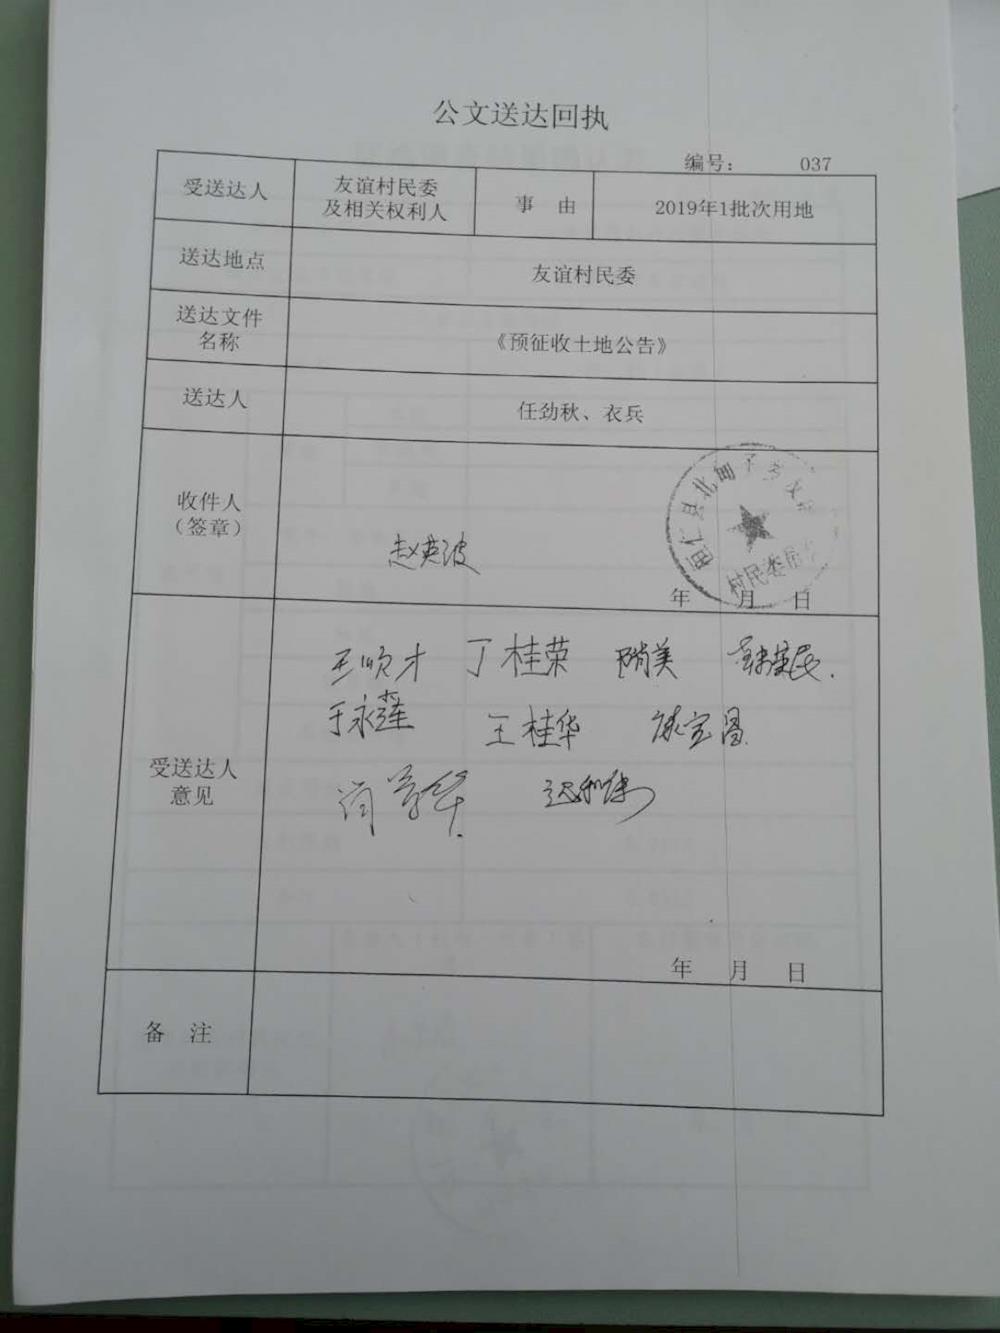 公文送达回执
编号： 037
受送达人
友谊村民委
及相关权利人
事 由
2019年1批次用地
送达地点
友谊村民委
送达文件
名称
《预征收土地公告》
送达人
任劲秋、衣兵
收件人
（签章）
赵英波
桓仁县北甸子乡友谊
村民委员会
年 月 日
受送达人
意见
王顺才 丁桂荣 美
于永莲 王桂华
年 月 日
备 注